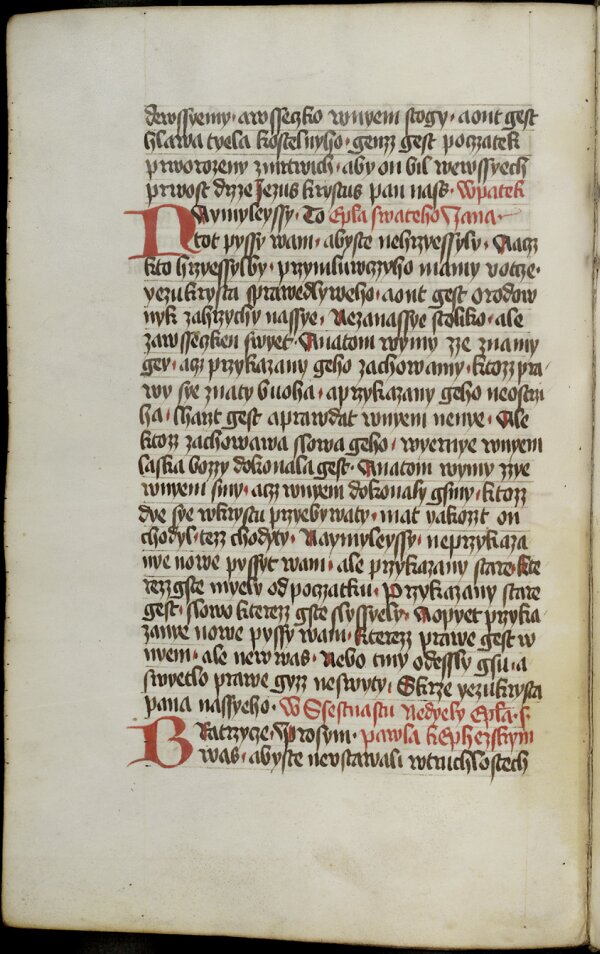 dewssyemy · awsseczko wnyem stogy · aont gest
hlawa tyela kostelnyho · genzz gest poczatek
prworozeny zmrtwich · aby on bil wewssyech
prwost drzze Jezus krystus pan nass · Wpatek
Naymyleyssy · To Epła swateho Jana ·
tot pyssy wam · abyste nehrzyessyly · Aacz
kto hrzyessylby · przymluwczyho mamy votcze ·
yezukrysta sprawedlyweho · aont gest orodow
nyk zahrzychy nassye · Nezanassye stoliko · ale
zawsseczken swyet · Anatom wymy zze znamy
gey · acz przykazany geho zachowamy · ktozz pra-
wy sye znaty buoha · aprzykazany geho neostrzi
ha · lharzt gest aprawdat wnyem nenye · Ale
ktozz zachowawa slowa geho · wyernye wnyem
laska bozzy dokonala gest · Anatom wymy zzye
wnyem smy · acz wnyem dokonaly gsmy · ktozz
dye sye wkrystu przyebywaty · mat yakozt on
chodyl · tezz chodyty · Naymyleyssy · neprzykaza
nye nowe pyssyt wam · ale przykazany stare · kte
rezz gste myely od poczatku · Przykazany stare
gest · slowo kterezz gste slyssyely · Aopyet przyka
zanye nowe pyssy wam · kterezz prawe gest w
nyem · ale new was · Nebo tmy odessly gsu · a
swyetlo prawe gyzz neswyty · Skrze yezukrysta
pana nassyeho · W Ssestnastu Nedyely Epła · s ·
Bratrzycze · Prosym · pawla kEphezskym
was · abyste neustawali wtruchlostech